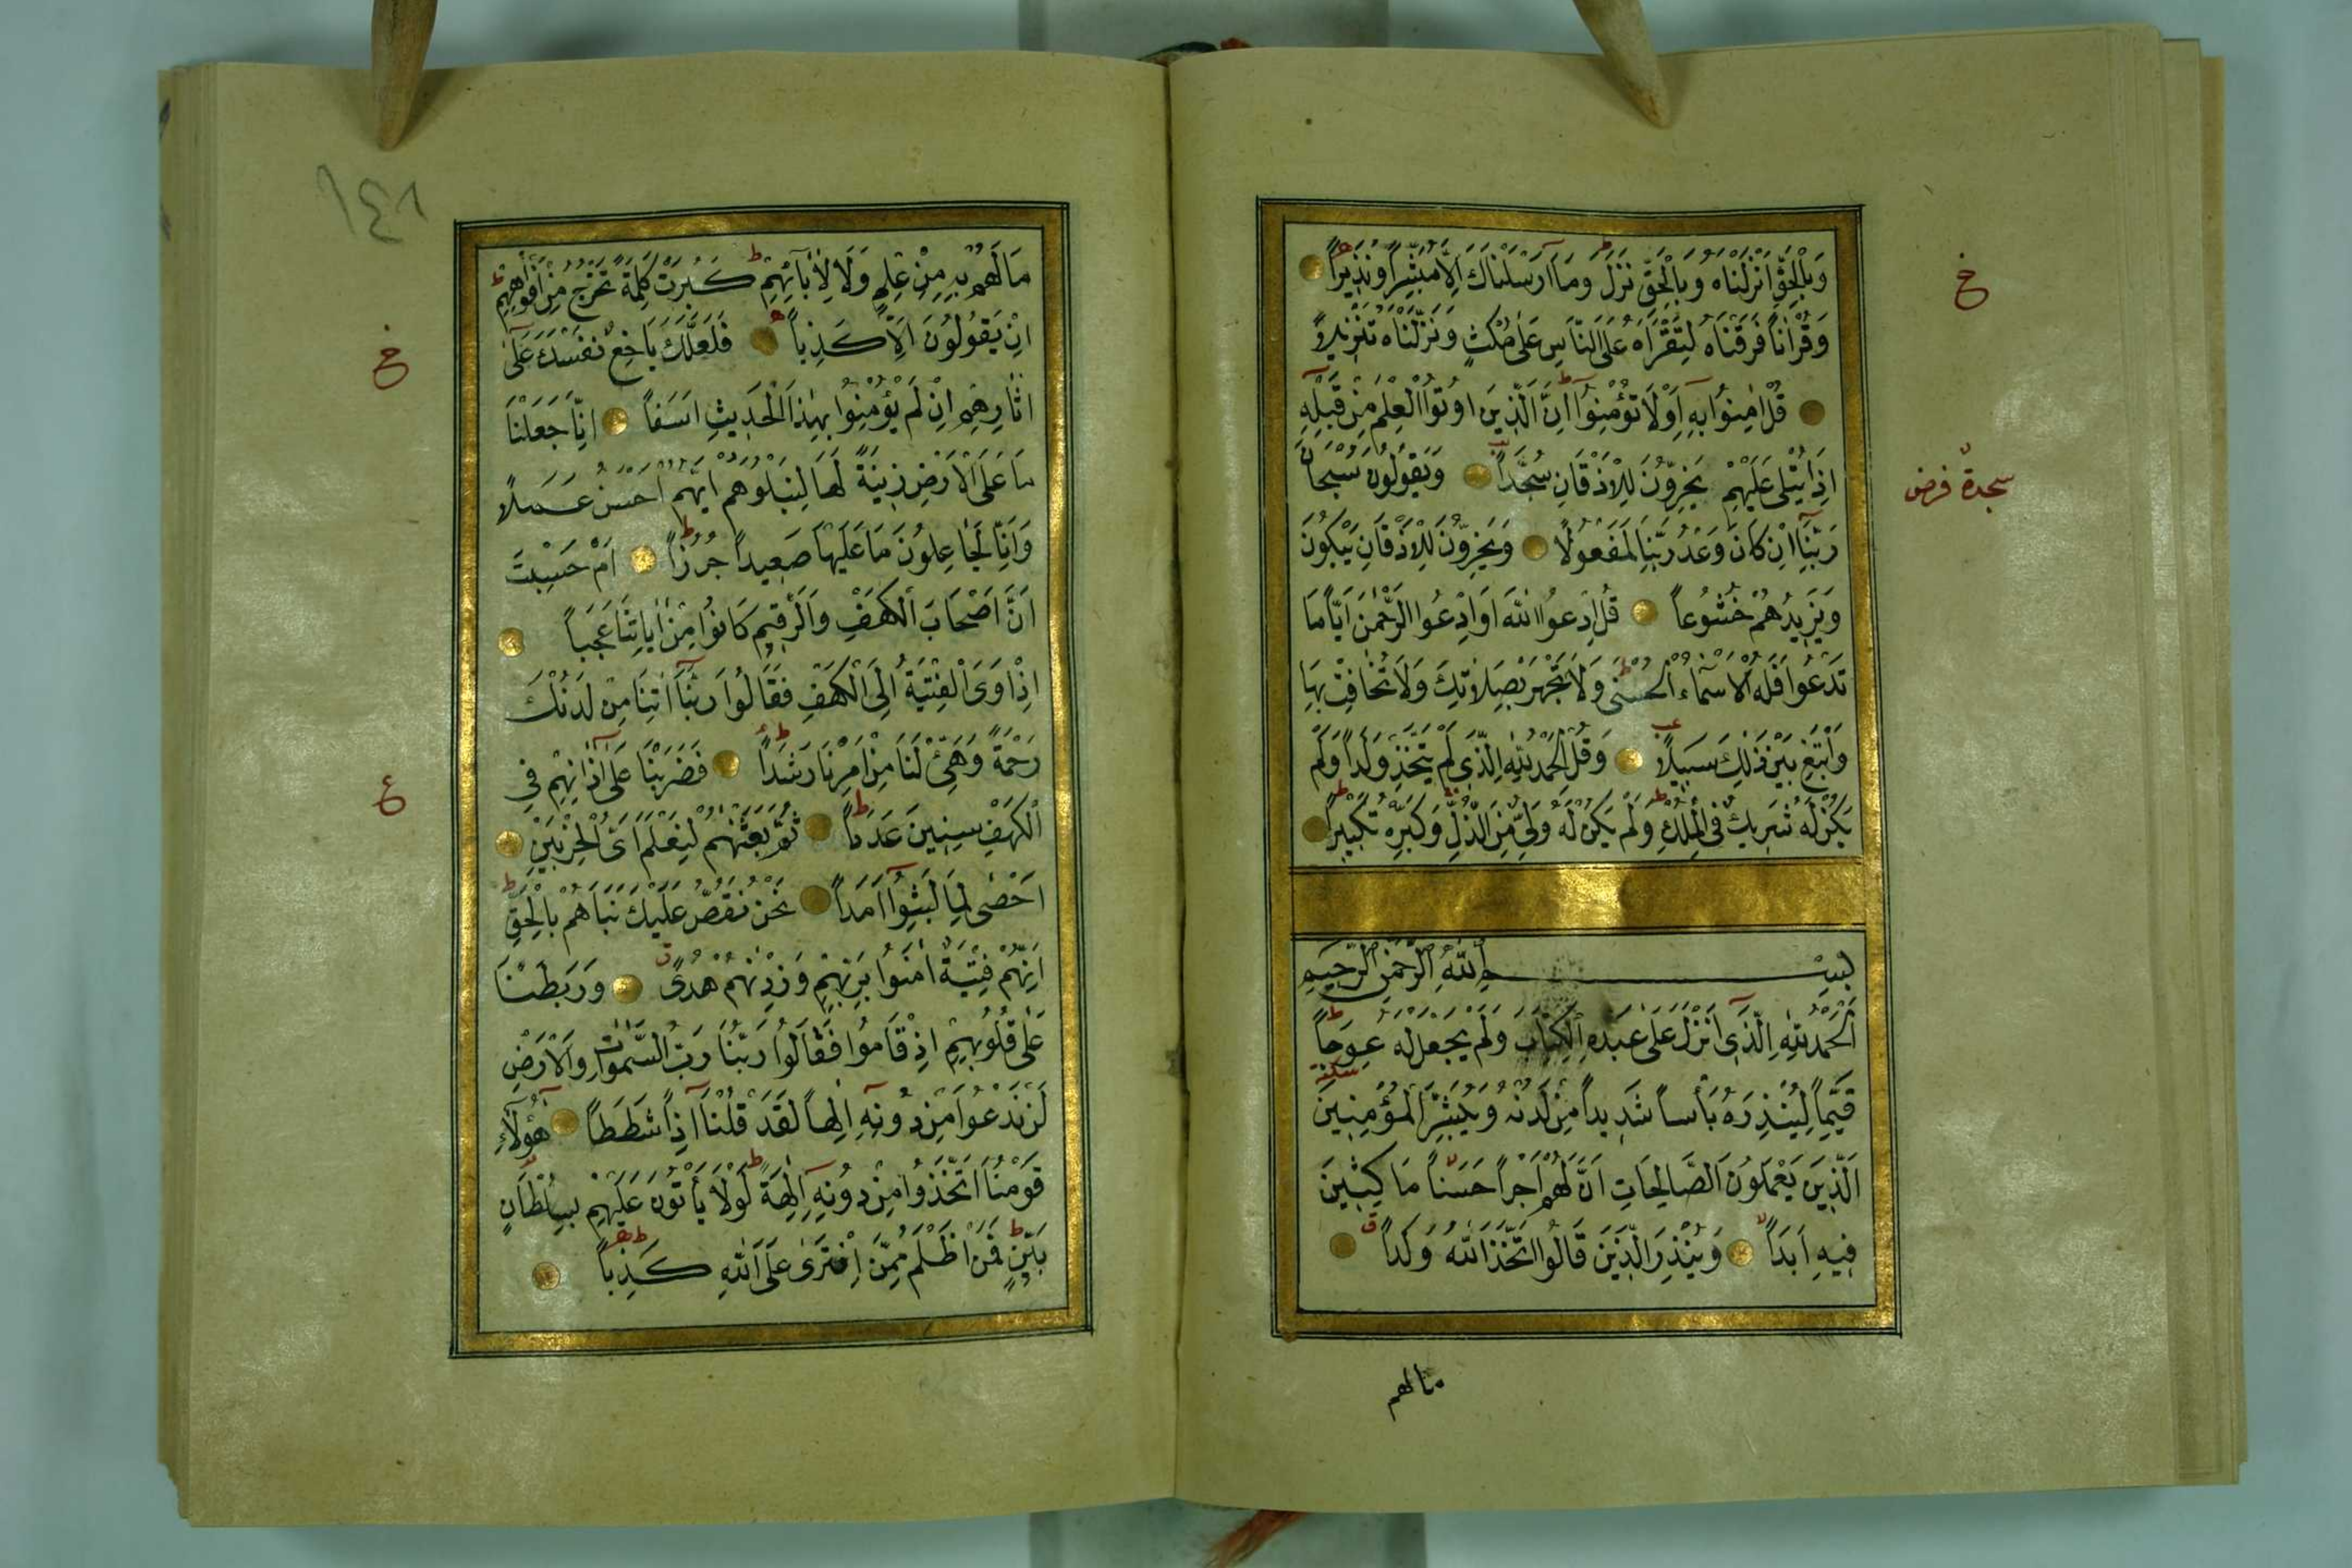 وَبِالْحَقِّ اَنْزَلْنَاهُ وَبِالْحَقِّ نَزَلَ وَمَا اَرْسَلْنَاكَ اِلَّا مُبَشِّرًا وَنَذِيرًا
خ
وَقُرْاٰنًا فَرَقْنَاهُ لِتَقْرَاَهُ عَلَى النَّاسِ عَلٰى مُكْثٍ وَنَزَّلْنَاهُ تَنْزِيلًا
قُلْ اٰمِنُوا بِهِ اَوْ لَا تُؤْمِنُوا اِنَّ الَّذِينَ اُوتُوا الْعِلْمَ مِنْ قَبْلِهِ
اِذَا يُتْلٰى عَلَيْهِمْ يَخِرُّونَ لِلْاَذْقَانِ سُجَّدًا وَيَقُولُونَ سُبْحَانَ
سجدة فرض
رَبِّنَا اِنْ كَانَ وَعْدُ رَبِّنَا لَمَفْعُولًا وَيَخِرُّونَ لِلْاَذْقَانِ يَبْكُونَ
وَيَزِيدُهُمْ خُشُوعًا قُلِ ادْعُوا اللّٰهَ اَوِ ادْعُوا الرَّحْمٰنَ اَيًّا مَا
تَدْعُوا فَلَهُ الْاَسْمَاءُ الْحُسْنٰى وَلَا تَجْهَرْ بِصَلَاتِكَ وَلَا تُخَافِتْ بِهَا
وَابْتَغِ بَيْنَ ذٰلِكَ سَبِيلًا وَقُلِ الْحَمْدُ لِلّٰهِ الَّذِي لَمْ يَتَّخِذْ وَلَدًا وَلَمْ
يَكُنْ لَهُ شَرِيكٌ فِي الْمُلْكِ وَلَمْ يَكُنْ لَهُ وَلِيٌّ مِنَ الذُّلِّ وَكَبِّرْهُ تَكْبِيرًا
بِسْمِ اللّٰهِ الرَّحْمٰنِ الرَّحِيمِ
اَلْحَمْدُ لِلّٰهِ الَّذِي اَنْزَلَ عَلٰى عَبْدِهِ الْكِتَابَ وَلَمْ يَجْعَلْ لَهُ عِوَجًا
قَيِّمًا لِيُنْذِرَ بَأْسًا شَدِيدًا مِنْ لَدُنْهُ وَيُبَشِّرَ الْمُؤْمِنِينَ
الَّذِينَ يَعْمَلُونَ الصَّالِحَاتِ اَنَّ لَهُمْ اَجْرًا حَسَنًا مَاكِثِينَ
فِيهِ اَبَدًا وَيُنْذِرَ الَّذِينَ قَالُوا اتَّخَذَ اللّٰهُ وَلَدًا
مالهم
١٤٨
مَا لَهُمْ بِهِ مِنْ عِلْمٍ وَلَا لِاٰبَائِهِمْ كَبُرَتْ كَلِمَةً تَخْرُجُ مِنْ اَفْوَاهِهِمْ
اِنْ يَقُولُونَ اِلَّا كَذِبًا فَلَعَلَّكَ بَاخِعٌ نَفْسَكَ عَلٰى
اٰثَارِهِمْ اِنْ لَمْ يُؤْمِنُوا بِهٰذَا الْحَدِيثِ اَسَفًا اِنَّا جَعَلْنَا
مَا عَلَى الْاَرْضِ زِينَةً لَهَا لِنَبْلُوَهُمْ اَيُّهُمْ اَحْسَنُ عَمَلًا
وَاِنَّا لَجَاعِلُونَ مَا عَلَيْهَا صَعِيدًا جُرُزًا اَمْ حَسِبْتَ
اَنَّ اَصْحَابَ الْكَهْفِ وَالرَّقِيمِ كَانُوا مِنْ اٰيَاتِنَا عَجَبًا
اِذْ اَوَى الْفِتْيَةُ اِلَى الْكَهْفِ فَقَالُوا رَبَّنَا اٰتِنَا مِنْ لَدُنْكَ
رَحْمَةً وَهَيِّئْ لَنَا مِنْ اَمْرِنَا رَشَدًا فَضَرَبْنَا عَلٰى اٰذَانِهِمْ فِي
ع
الْكَهْفِ سِنِينَ عَدَدًا ثُمَّ بَعَثْنَاهُمْ لِنَعْلَمَ اَيُّ الْحِزْبَيْنِ
اَحْصٰى لِمَا لَبِثُوا اَمَدًا نَحْنُ نَقُصُّ عَلَيْكَ نَبَاَهُمْ بِالْحَقِّ
اِنَّهُمْ فِتْيَةٌ اٰمَنُوا بِرَبِّهِمْ وَزِدْنٰهُمْ هُدًى وَرَبَطْنَا
عَلٰى قُلُوبِهِمْ اِذْ قَامُوا فَقَالُوا رَبُّنَا رَبُّ السَّمٰوَاتِ وَالْاَرْضِ
لَنْ نَدْعُوَا مِنْ دُونِهِ اِلٰهًا لَقَدْ قُلْنَا اِذًا شَطَطًا هٰؤُلَاءِ
قَوْمُنَا اتَّخَذُوا مِنْ دُونِهِ اٰلِهَةً لَوْلَا يَأْتُونَ عَلَيْهِمْ بِسُلْطَانٍ
بَيِّنٍ فَمَنْ اَظْلَمُ مِمَّنِ افْتَرٰى عَلَى اللّٰهِ كَذِبًا